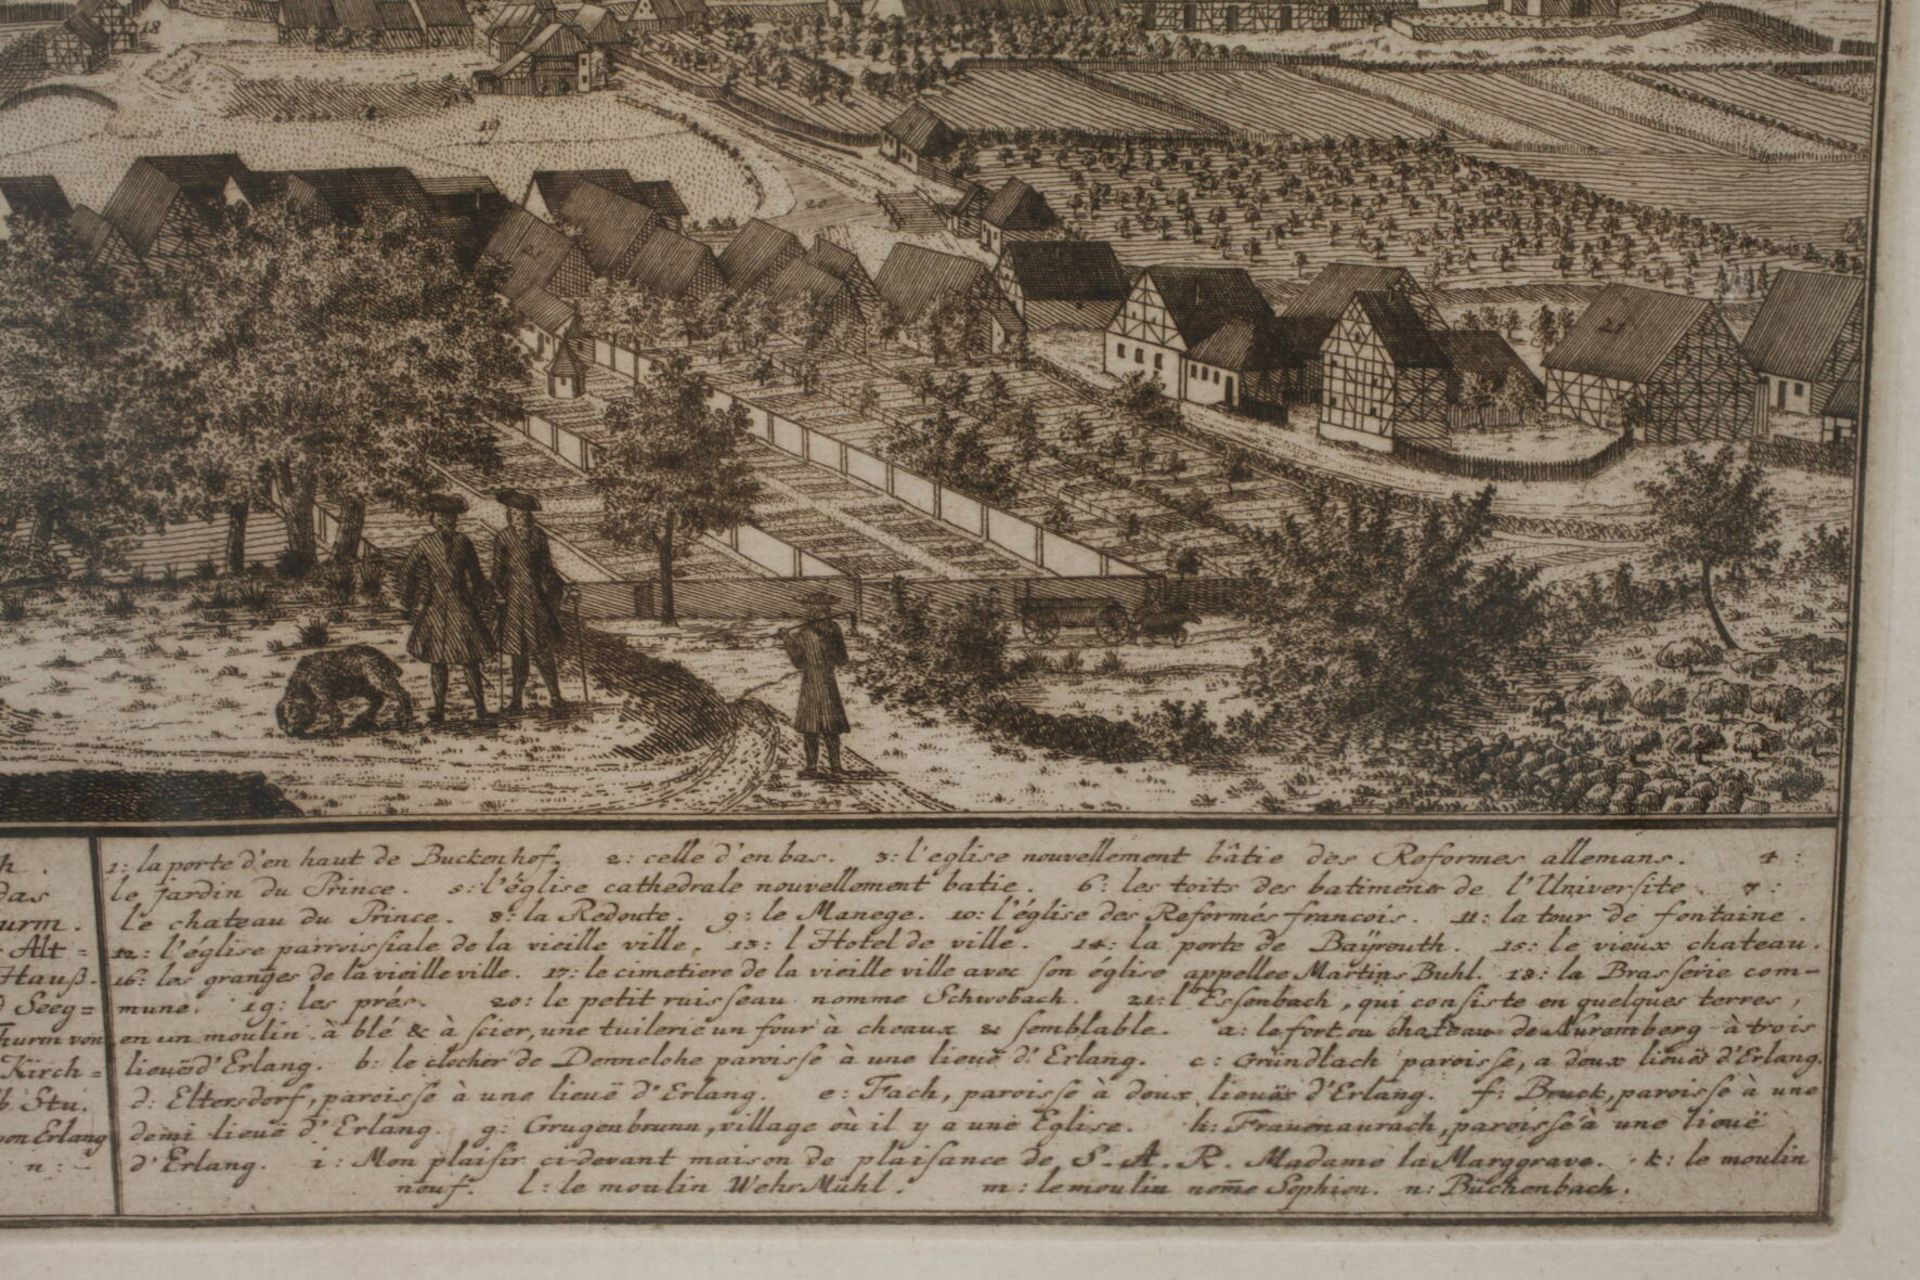 18
19
20
21
h.
das
urm.
Alt=
Hauß.
Seeg=
hurm von
Kirch=
Stu.
von Erlang
n:-
1: la porte d'en haut de Buckenhof. 2: celle d'en bas. 3: l'eglise nouvellement bâtie des Reformes allemans. 4:
le jardin du Prince. 5: l'église cathedrale nouvellement batie. 6: les toits des batimens de l'Universite. 7:
le chateau du Prince. 8: la Redoute. 9: le Manege. 10: l'église des Reformés francois. 11: la tour de fontaine.
12: l'église parroissiale de la vieille ville. 13: l'Hotel de ville. 14: la porte de Baÿreuth. 15: le vieux chateau.
16: les granges de la vieille ville. 17: le cimetiere de la vieille ville avec son église appellee Martins Buhl. 18: la Brasserie com-
mune. 19: les prés. 20: le petit ruisseau nomme Schwobach. 21: l'Essenbach, qui consiste en quelques terres,
en un moulin à blé & à scier, une tuilerie un four à cheaux & semblable. a: le fort ou chateau de Nuremberg à trois
lieuë d'Erlang. b: le clocher de Dennelohe paroisse à une lieuë d'Erlang. c: Gründlach paroisse, a deux lieuës d'Erlang.
d: Eltersdorf, paroisse à une lieuë d'Erlang. e: Fach, paroisse à deux lieuës d'Erlang. f: Bruck, paroisse à une
demi lieuë d'Erlang. g: Grugenbrunn, village où il y a une Eglise. h: Frauenaurach, paroisse à une lieuë
d'Erlang. i: Mon plaisir ci-devant maison de plaisance de S. A. R. Madame la Marggrave. k: le moulin
neuf. l: le moulin Wehr Mühl. m: le moulin nom̄e Sophien. n: Bückenbach.